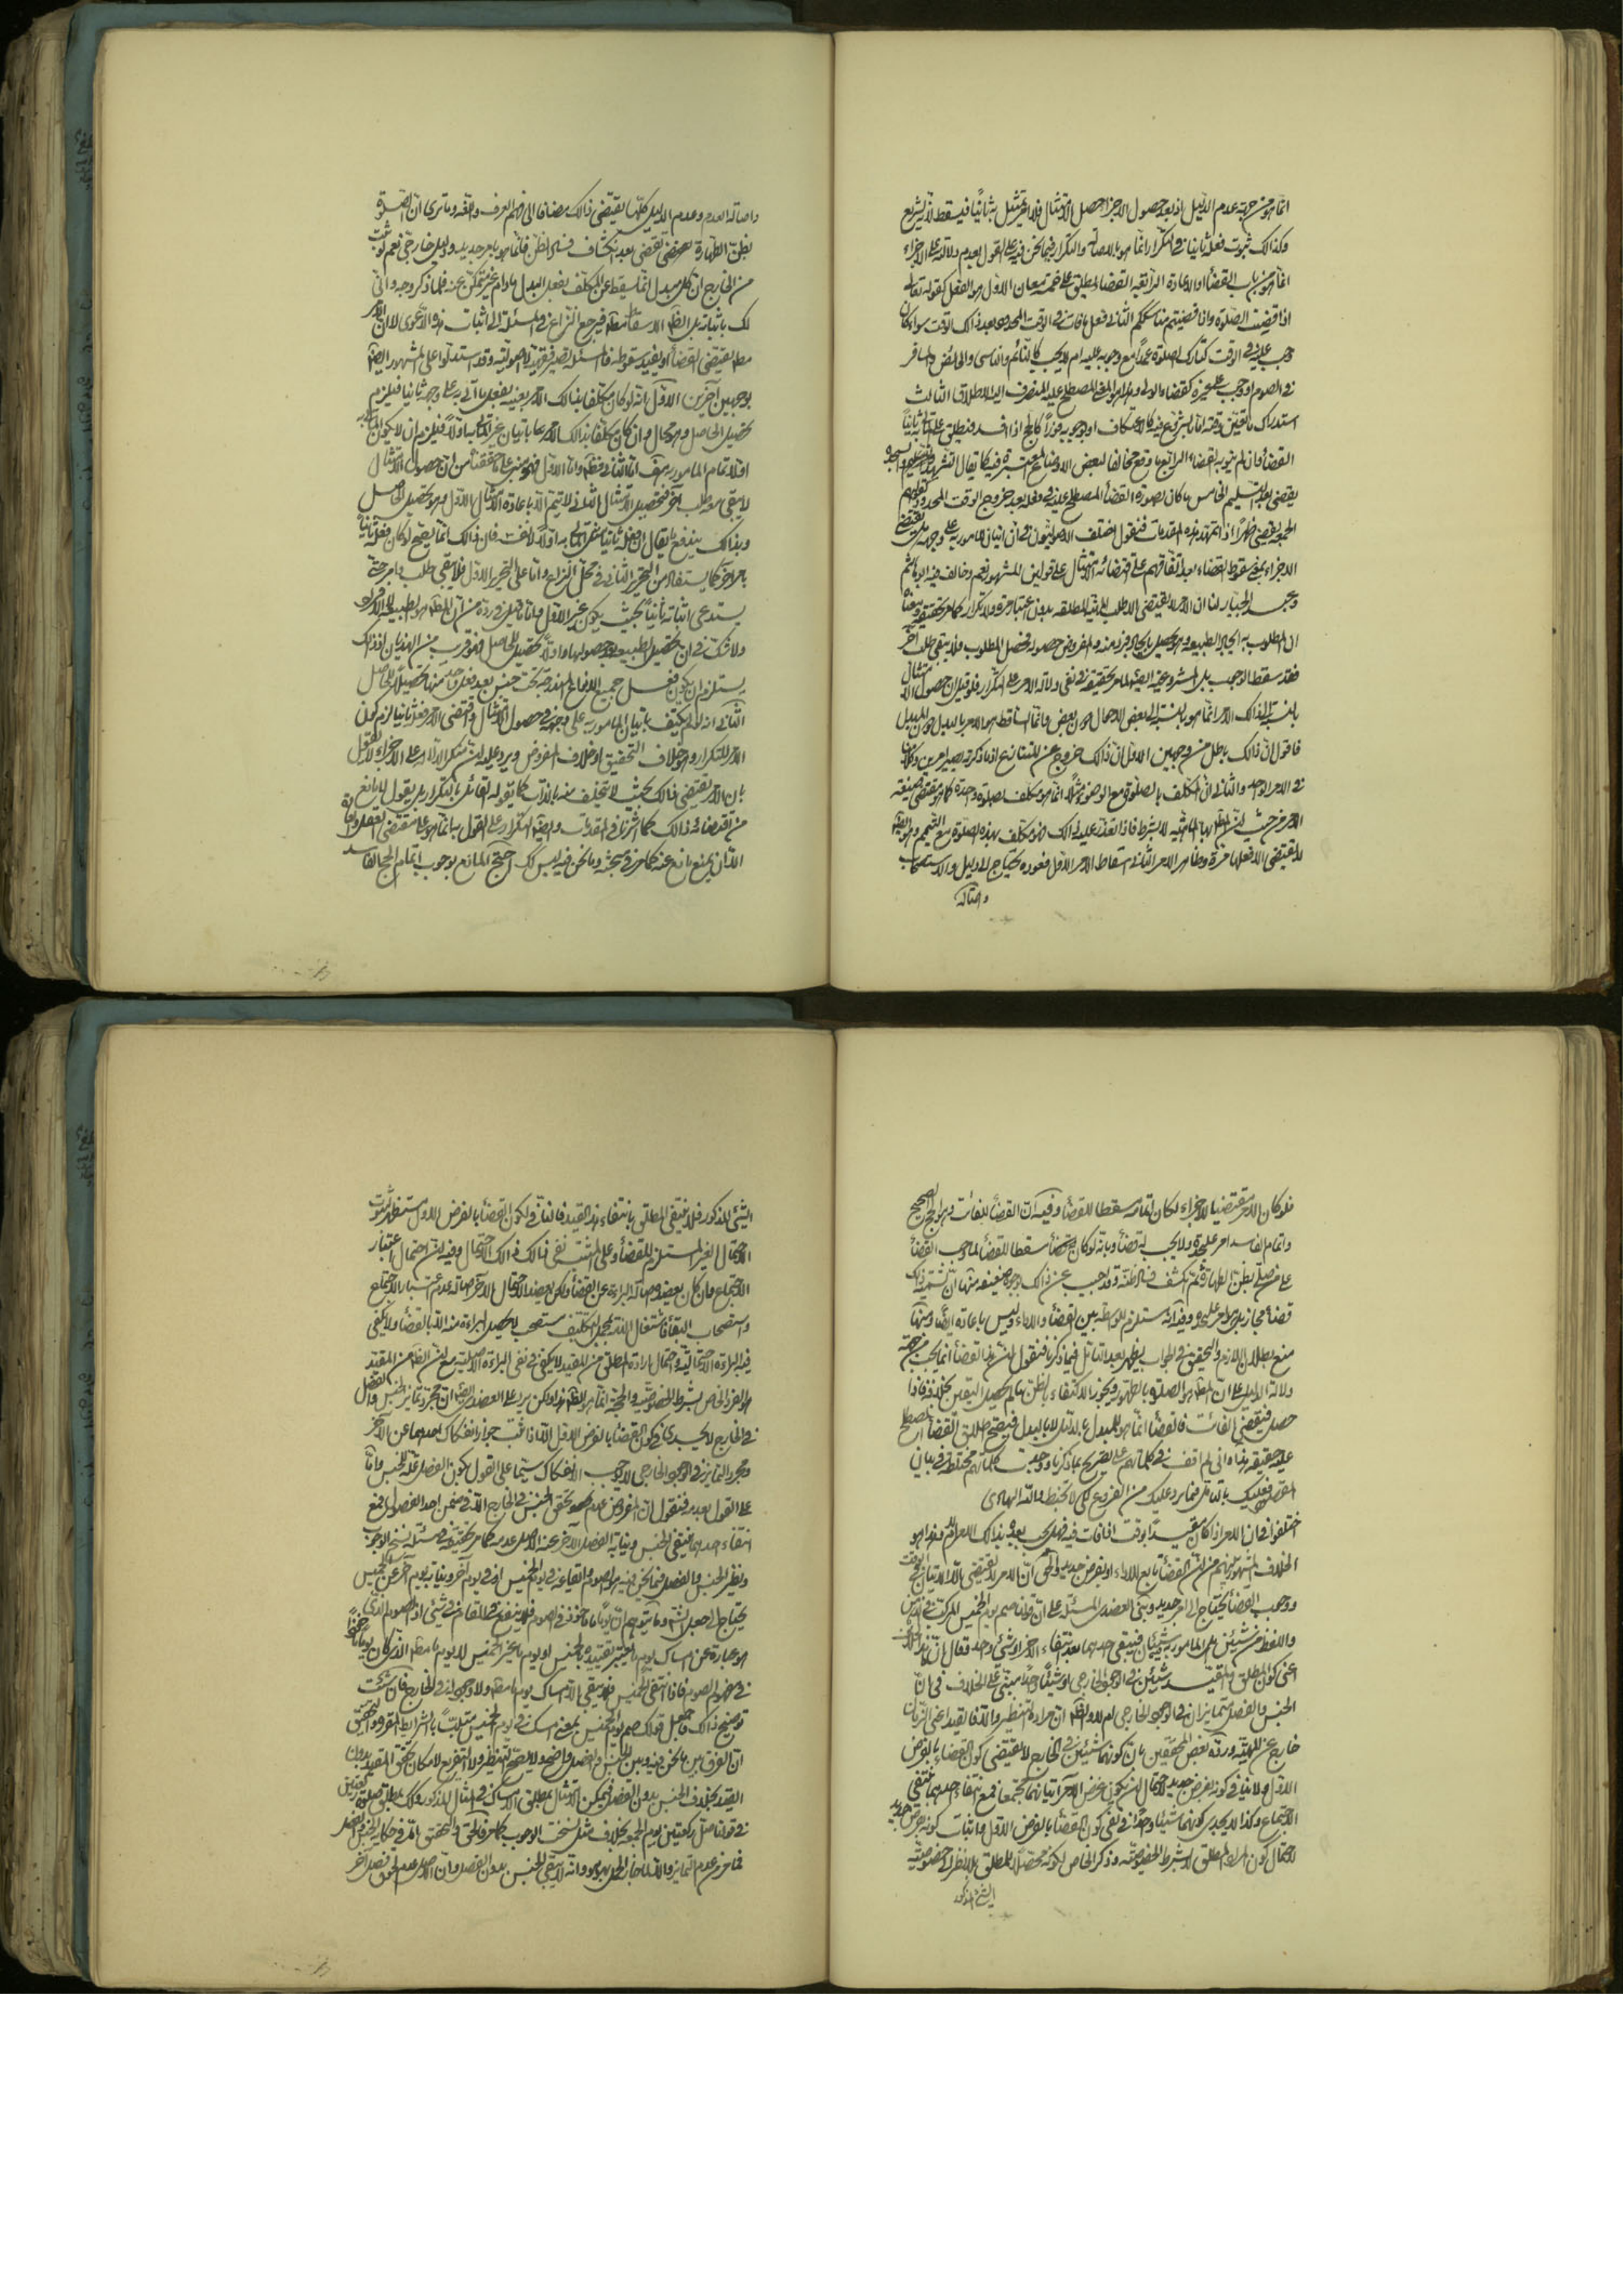 انما هو من جهة عدم الدليل اذ بعد حصول الاجزاء حصل الامتثال فلا امر يمتثل به ثانيا فيسقط لانه تشريع
وكذالك ثبوت فعله ثانيا في التكرار انما هو بالاصالة والتكرار فيما نحن فيه على القول بعدم دلالته على الاجزاء
انما هو من باب القضاء او الاعادة الرابعة القضاء يطلق على خمسة معان الاول هو الفعل كقوله تعالى
اذا قضيت الصلوة واذا قضيتم مناسككم الثاني فعل ما فات في الوقت المحدود بعد ذالك الوقت سواء كان
وجب عليه في الوقت كتارك الصلوة عمدا مع وجوبه عليه ام لم يجب كالنائم والناسي والحائض والمسافر
في الصوم او وجب على غيره كقضاء الولي وهذا هو المعنى المصطلح عليه المنصرف اليه الاطلاق الثالث
استدراك ما تعين وقته اما بالشروع فيه كالاعتكاف او بوجوبه فورا كالحج اذا افسد فيطلق على اتيانه ثانيا
القضاء وان لم ينو به القضاء الرابع ما وقع مخالفا لبعض الاوضاع المعتبرة فيه كما يقال
يقضي بعد التسليم الخامس ما كان بصورة القضاء المصطلح عليه في فعله بعد خروج الوقت المحدود كقولهم
الجمعة يقضي ظهرا اذا تمهد هذه المقدمات فنقول اختلف الاصوليون في ان اتيان المامور به على وجهه هل يقتضي
الاجزاء بمعنى سقوط القضاء بعد اتفاقهم على اقتضائه الامتثال على قولين المشهور نعم وخالف فيه ابو هاشم
وعبد الجبار لنا ان الامر لا يقتضي الا طلب الماهية المطلقة بدون اعتبار مرة ولا تكرار كما مر تحقيقه ومعناه
ان المطلوب به ايجاد الطبيعة وهو يحصل بايجاد فرد منه والمفروض حصوله فحصل المطلوب فلا يبقى طلب آخر
فقد سقط الوجوب بل المشروعية ايضا لما مر تحقيقه في نفي دلالة الامر على التكرار فلو قيل ان حصول الامتثال
بالنسبة الى ذالك الامر انما هو بالنسبة الى بعض الاحوال دون بعض وانما الساقط هو الامر بالبدل دون المبدل
فاقول ان ذالك باطل من وجهين الاول ان ذالك خروج عن المتنازع اذ ما ذكرته يصير امرين وكلامنا
في الامر الواحد والثاني ان المكلف بالصلوة مع الوضوء مثلا انما هو مكلف بصلوة واحدة كما هو مقتضى صيغة
الامر من حيث ان المطلوب بها الماهية لا بشرط فاذا تعذر عليه ذالك فهو مكلف بهذه الصلوة مع التيمم وهو ايضا
لا يقتضي الا فعلها مرة وظاهر الامر الثاني اسقاط الامر الاول فعوده يحتاج الى دليل والاستصحاب
واصالة
واصالة العدم وعدم الدليل كلها يقتضي ذالك مضافا الى فهم العرف واللغة وما ترى ان الصلوة
بظن الطهارة يقضى بعد انكشاف فساد الظن فانما هو بامر جديد ودليل خارجي نعم لو ثبت
من الخارج ان كل مبدل انما يسقط عن المكلف بفعل البدل ما دام غير متمكن منه فلما ذكر وجه وانى
لك باثباته بل الظاهر الاسقاط مطلقا فيرجع النزاع في المسئلة الى اثبات هذه الدعوى لا ان الامر
مطلقا يقتضي القضاء او يفيد سقوطه فالمسئلة تصير فقهية لا اصولية وقد استدلوا على المشهور ايضا
بوجهين آخرين الاول انه لو كان مكلفا بذالك الامر بعينه بفعل ما اتى به على وجهه ثانيا فيلزم
تحصيل الحاصل وهو محال وان كان مكلفا بذالك الامر باتيان غير الماتي به اولا فيلزم ان لا يكون الماتي به
اولا تمام المامور به هف اما الثاني فظاهر واما الاول فهو مبني على ما حققنا من ان حصول الامتثال
لا يبقى معه طلب آخر فتحصيل الامتثال الثاني لا يتم الا باعادة الامتثال الاول وهو تحصيل الحاصل
وبذالك يندفع ما يقال ان فعله ثانيا غير الماتي به اولا لا نفسه فان ذالك انما يصح لو كان فعله ثانيا
بامر آخر كما يستفاد من التحرير الثاني في محل النزاع واما على التحرير الاول فلا يبقى طلب وامر حتى
يستدعي اثباته ثانيا بحيث يكون غير الاول واما ما قيل في رده من ان المطلوب هو الطبيعة لا الافراد
ولا شك في ان تحصيل الطبيعة بعد حصولها اولا تحصيل للحاصل فهو قريب من الهذيان اذ ذالك
يستلزم ان يكون فعل جميع الانواع المندرجة تحت جنس بعد فعل واحد منها تحصيلا للحاصل
الثاني انه لو لم يكتف باتيان المامور به على وجهه في حصول الامتثال واقتضى الامر فعله ثانيا لزم كون
الامر للتكرار وهو خلاف التحقيق او خلاف المفروض ويرد عليه ان منكر الدلالة على الاجزاء لا يقول
بان الامر يقتضي ذالك بحيث لا يتخلف منه بالذات كما يقوله القائل بالتكرار بل يقول لا مانع
من اقتضائه ذالك كما اشرنا في المقدمات وايضا التكرار على القول به انما هو على مقتضى العقل والعادة
الا ان يمنع مانع عنه كما مر في مبحثه وما نحن فيه ليس كك احتج المانع بوجوب اتمام الحج الفاسد
فلو كان الامر مقتضيا للاجزاء لكان اتمامه مسقطا للقضاء وفيه ان القضاء للفائت وهو الحج الصحيح
واتمام الفاسد امر عليحدة ولا يجب له قضاء وبانه لو كان مسقطا للقضاء لما وجب القضاء
على من صلى بظن الطهارة ثم انكشف فساد ظنه وقد اجيب عن ذالك بوجوه ضعيفة منها ان تسمية ذالك
قضاء مجاز بل هو امر عليحدة وفيه انه مستلزم للواسطة بين القضاء والاداء وليس باعادة ايضا ومنها
منع بطلان اللازم والتحقيق في الجواب يظهر بعد التامل فيما ذكرنا فنقول ان هذا القضاء انما يجب من جهة
دلالة الدليل على ان المطلوب هو الصلوة بالطهور ويجوز الاكتفاء بالظن ما لم يحصل اليقين بخلافه فاذا
حصل فيقضي الفائت فالقضاء انما هو للمبدل لا للبدل فيصح اطلاق القضاء المصطلح
عليه حقيقة هذا واني لم اقف في كلماتهم على تصريح بما ذكرنا ووجدت كلماتهم مختلطة في بيان
المقصود فعليك بالتامل فيما يرد عليك من الفروع لكي لا تخبط والله الهادي
اختلفوا في ان الامر اذا كان مقيدا بوقت اذا فات فيه فهل يجب بعده بذالك الامر ام لا وهذا هو
الخلاف المشهور بينهم من ان القضاء تابع للاداء او بفرض جديد والحق ان الامر لا يقتضي الا الاتيان في الوقت
ووجوب القضاء يحتاج الى امر جديد وبنى العضدي المسئلة على ان قولنا صم يوم الخميس المركب في الذهن
واللفظ من شيئين هل المامور به شيئان فيبقى احدهما بعد انتفاء الآخر او شيء واحد فقال ان هذا الخلاف
اعني كون المطلق والمقيد شيئين في الوجود الخارجي او شيئا واحدا مبني على الخلاف في ان
الجنس والفصل متمايزان في الوجود الخارجي ام لا والظاهر ان مراده التنظير والا فالقيد اعني الزمان
خارج عن الماهية ورده بعض المحققين بان كونهما شيئين في الخارج لا يقتضي كون القضاء بالفرض
الاول ولا ينافي كونه بفرض جديد لاحتمال ان يكون غرض الآمر اتيانهما مجتمعا فمع انتفاء احدهما ينتفي
الاجتماع وكذا لا يجدي كونهما شيئا واحدا في نفي كون القضاء بالفرض الاول واثبات كونه بفرض جديد
لاحتمال كون المراد المطلق لا بشرط الخصوصية وذكر الخاص لكونه محصلا للمطلق لا بالنظر الى خصوصيته
الشيء المذكور
الشيء المذكور فلا ينتفي المطلق بانتفاء هذا القيد فالنافي لكون القضاء بالفرض الاول يستظهر ثبوت
الاحتمال الغير المستلزم للقضاء وعلى المثبت نفي ذالك الاحتمال وفيه ان احتمال اعتبار
الاجتماع وان كان يعضده اصالة البراءة عن القضاء ولكن يعضد الاحتمال الآخر اصالة عدم اعتبار الاجتماع
واستصحاب البقاء فاشتغال الذمة بمجمل التكليف مستصحب لا يحصل البراءة منه الا بالقضاء ولا يكفي
فيه البراءة الاحتمالية واحتمال ارادة المطلق من المقيد لا يكفي في نفي البراءة الاصلية مع ان الظاهر من المقيد
هو الفرد الخاص بشرط الخصوصية والحجة انما هو الظاهر هذا ولكن يرد على العضدي ايضا ان مجرد تمايز الجنس والفصل
في الخارج لا يجدي في كون القضاء بالفرض الاول الا اذا ثبت جواز انفكاك احدهما عن الآخر
ومجرد التمايز في الوجود الخارجي لا يوجب الانفكاك سيما على القول بكون الفصل علة للجنس واما
على القول بعدمه فنقول ان المفروض عدم تحقق الجنس في الخارج الا في ضمن احد الفصول فمع
انتفاء احدهما ينتفي الجنس ونيابة الفصل الآخر عنه الاصل عدمه كما مر تحقيقه في مسئلة نسخ الوجوب
ونظير الجنس والفصل فيما نحن فيه هو الصوم وايقاعه في يوم الخميس او في يوم آخر ونيابة يوم آخر عن الخميس
يحتاج الى جعل الشارع وما يتوهم ان يوما ما ماخوذ في الصوم فلا ينفع في المقام في شيء اذ الصوم الذي
هو عبارة عن امساك يوم ما يعتبر تقييده بالخميس او يوم ما غير الخميس لا يوم ما مطلقا الذي كان ماخوذا
في مفهوم الصوم فاذا انتفى الخميس فلا يبقى الا امساك يوم ما مطلقا ولا وجود له في الخارج فان شئت
توضيح ذالك فاجعل قولك صم يوم الخميس بمعنى امسك في يوم الخميس متلبسا بالشرايط المقررة والتحقيق
ان الفرق بين ما نحن فيه وبين الجنس والفصل واضح ولا يصح التنظير ولا التفريع لامكان تحقق المقيد بدون
القيد بخلاف الجنس بدون الفصل فيمكن الامتثال بمطلق الامساك في المثال المذكور وكك مطلق صلوة ركعتين
في قولنا صل ركعتين يوم الجمعة بخلاف مثل نسخت الوجوب كما مر والحق والتحقيق انه في حكاية الجنس والفصل